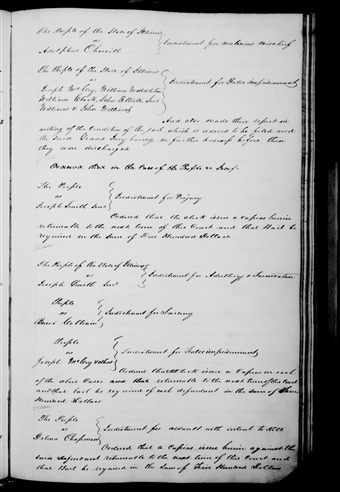 The People of the State of Illinois
vs
Indictment for malicious mischief
Adolphus
The People of the State of Illinois
vs
Indictment for False imprisonment
Joseph McCoy, William Middleton
William Clark, John
Williams & John Williams
And also made their report in
writing of the Condition of the jail which is ordered to be filed and
the said Grand Jury having no further business before them
they were discharged
Ordered that in the Case of the People vs
The People
vs
Indictment for Perjury
Joseph Smith Senr
Ordered that the clerk issue a capias herein
returnable to the next term of this Court and that Bail be
required in the Sum of Hundred Dollars
The People of the State of Illinois
vs
Indictment for Adultery & Fornication
Joseph Smith
People
vs
Indictment for Larceny
The People
vs
Indictment for False imprisonment
Joseph McCoy & others
Ordered that the clerk issue a Capias in each
of the above Cases and that returnable to the next term of this Court
and that bail be required of each defendant in the sum of
Hundred Dollars
The People
vs
Indictment for assault with intent to Kill
Chapman
Ordered that a Capias issue herein against the
said defendant returnable to the next term of this Court and
that Bail be required in the Sum of Hundred Dollars